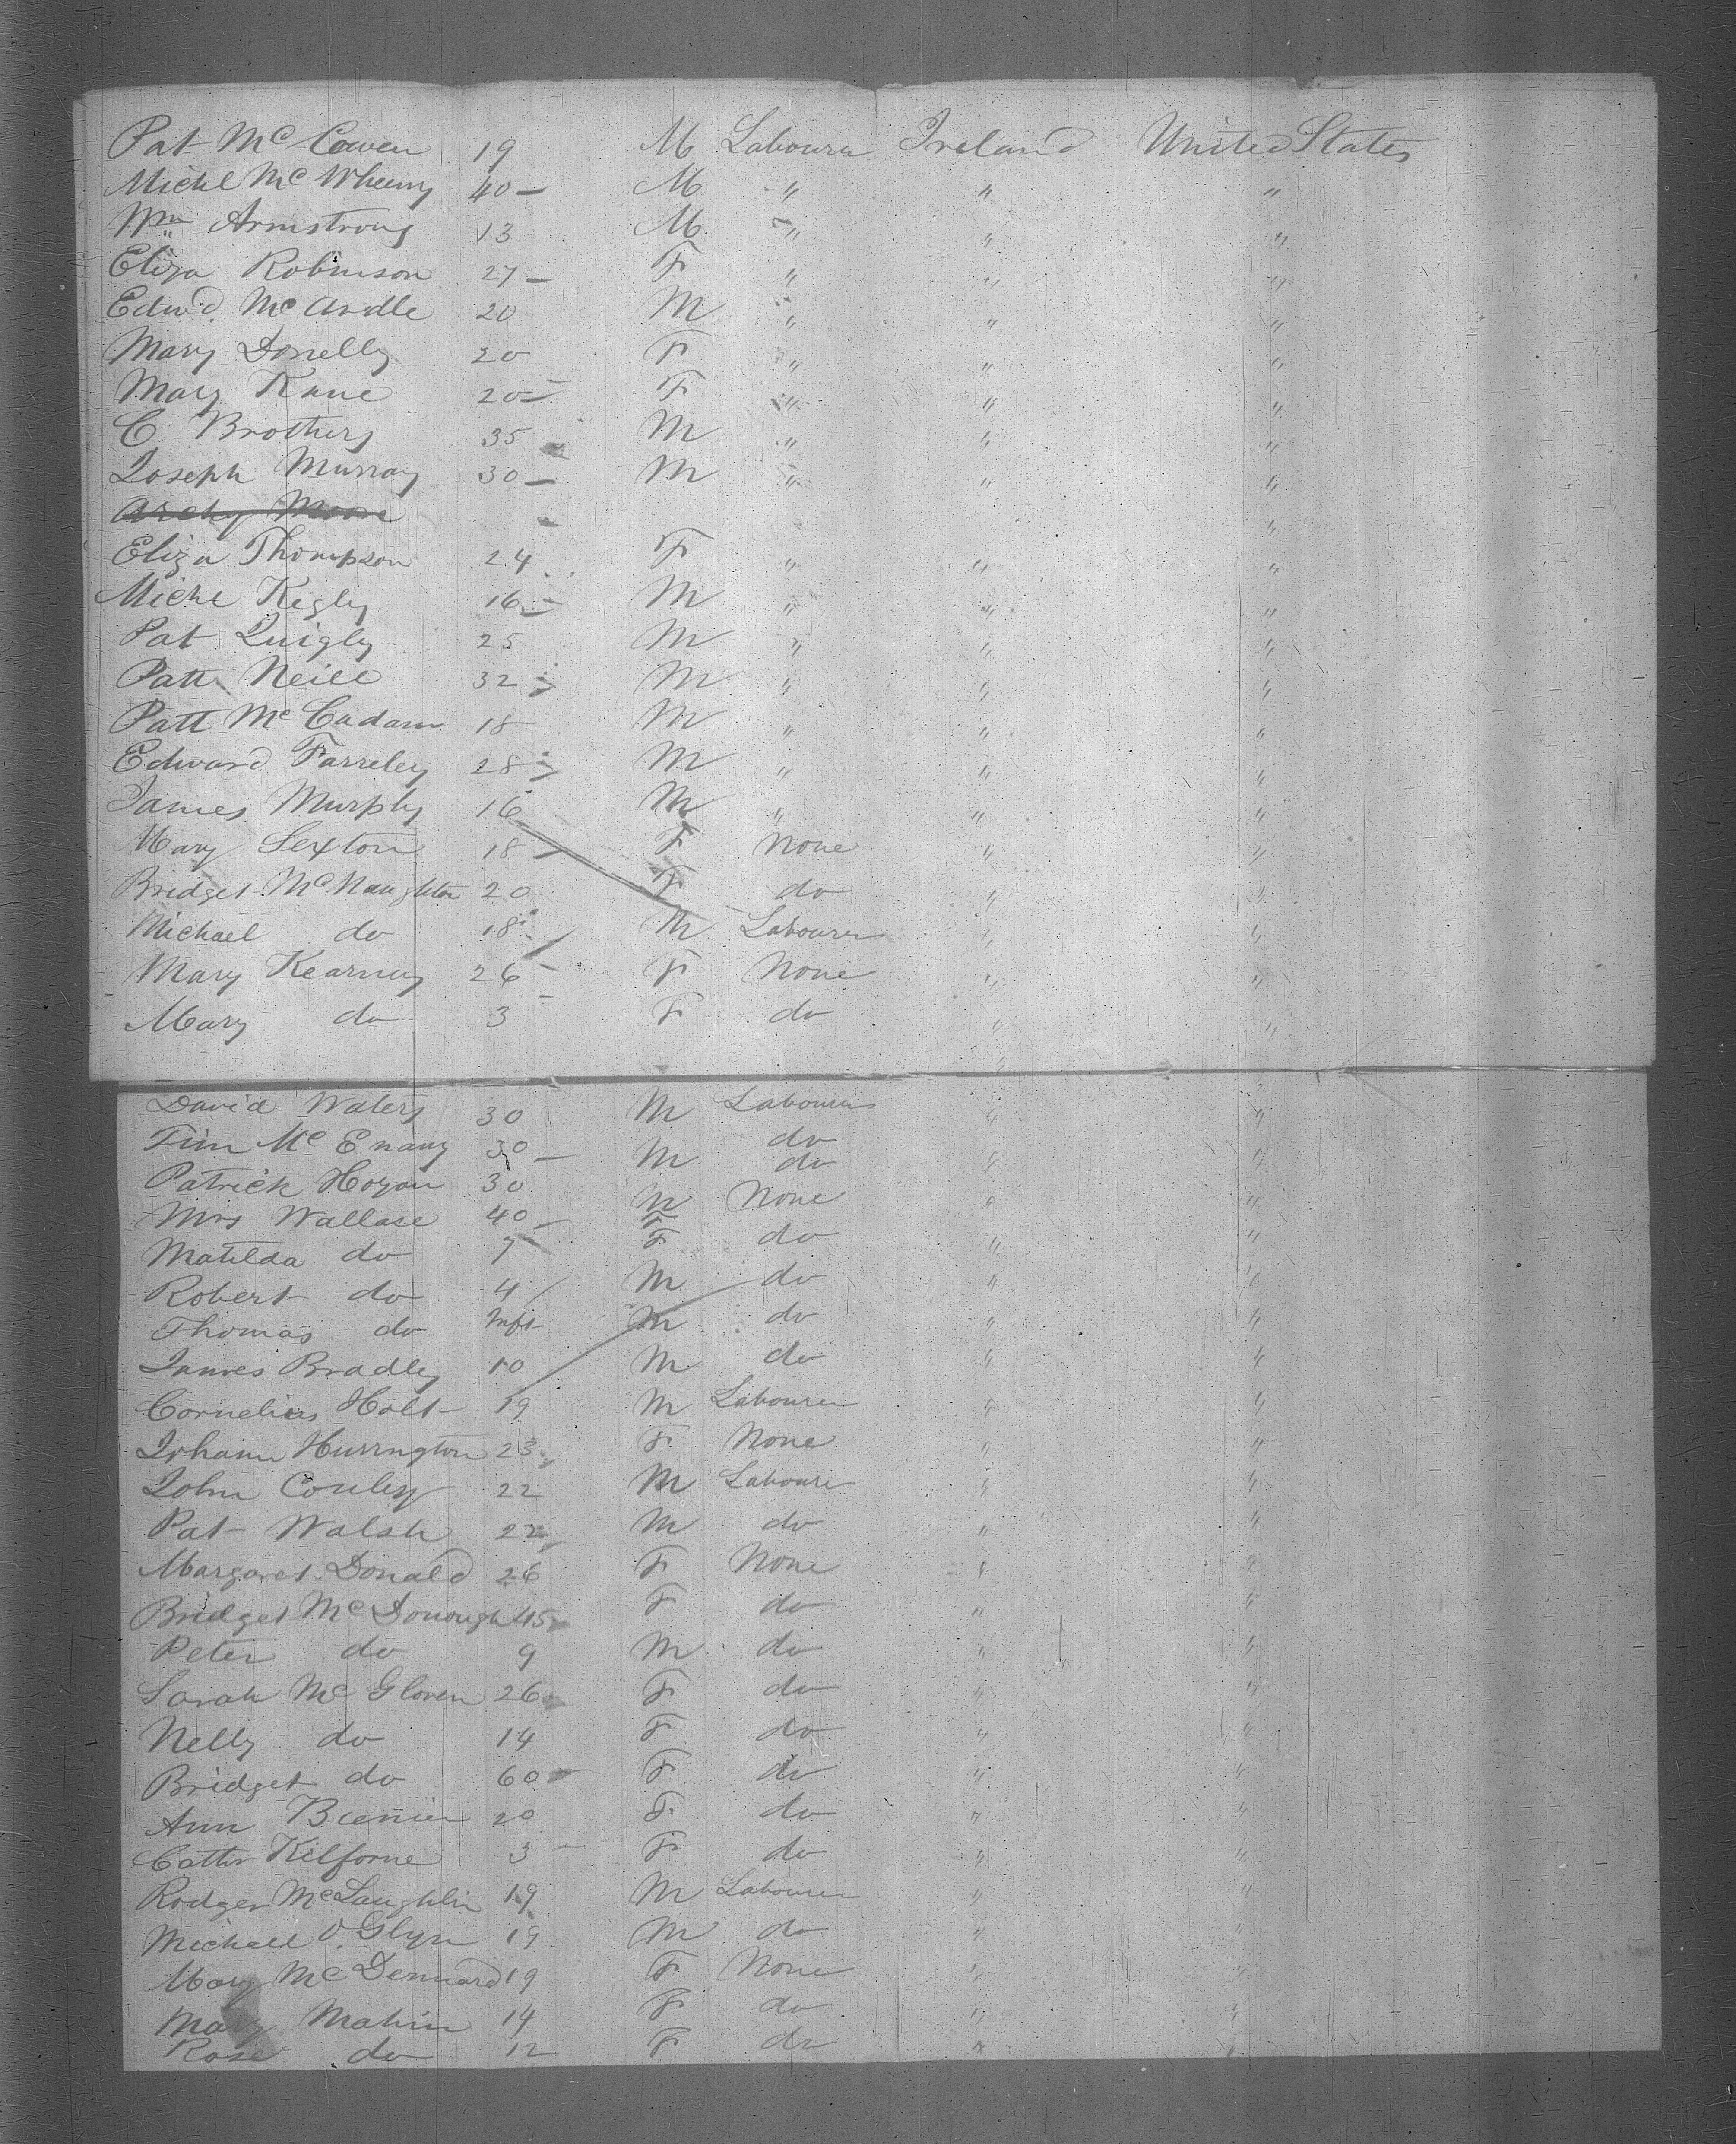 Pat McCowen 19 M Labourer Ireland United States
Michl McWheeny 40 — M " " "
Wm Armstrong 13 M " " "
Eliza Robinson 27 — F " " "
Edwd. McArdle 20 M " " "
Mary Donelly 20 F " " "
Mary Kane 20 — F " " "
C Brothers 35 M " " "
Joseph Murray 30 — M " " "
Archy Moore "
Eliza Thompson 24 F " " "
Michl Kegly 16 — M " " "
Pat Quigly 25 M " " "
Patt Neill 32 M " " "
Patt McCadam 18 M " " "
Edward Farreley 28 M " " "
James Murphy 16 M " " "
Mary Sexton 18 — F None " "
Bridget McNaughton 20 F do " "
Michael do 18 M Labourer " "
Mary Kearney 26 — F None " "
Mary do 3 F do " "
David Waters 30 M Labourer " "
Tim McEnany 30 — M do " "
Patrick Hogan 30 M do
None " "
Mrs Wallace 40 — F
Matilda do 7 F do " "
Robert do 4 M do " "
Thomas do Inft M do " "
James Bradley 10 M do " "
Cornelius Holt 19 M Labourer " "
Johann Hurrington 23 F None " "
John Conley 22 M Labourer " "
Pat Walsh 22 M do " "
Margaret Donald 26 F None " "
Bridget McDonough 45 F do " "
Peter do 9 M do " "
Sarah McGloren 26 F do " "
Nelly do 14 F do " "
Bridget do 60 F do " "
Ann 20 F do " "
Cathr Kilforne 3 — F do " "
Rodger McLaughlin 19 M Labourer " "
Michael O'Glyn 19 M do " "
Mary McDennard 19 F None " "
Mary Mahin 14 F do " "
Rose do 12 F do " "